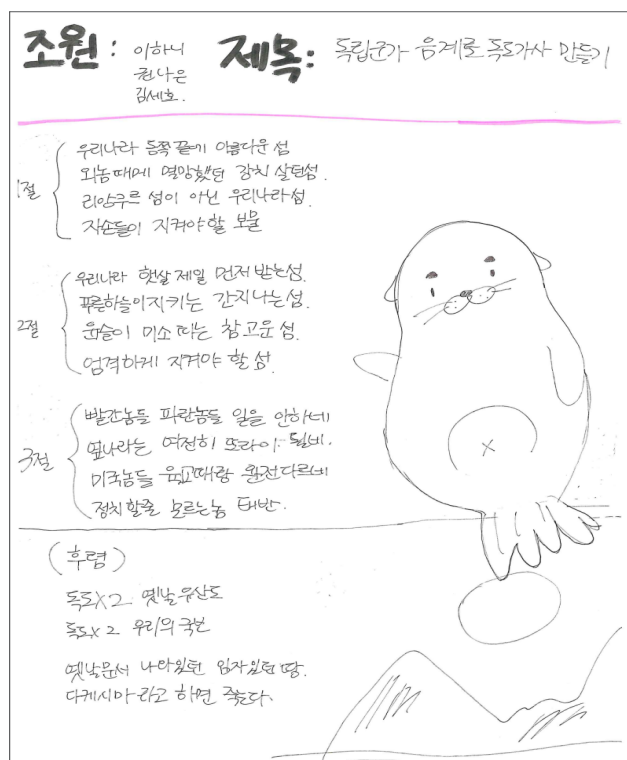 조원 : 이하니
권나은
김세호.
제목: 독립군가 음계로 독도가사 만들기
1절
우리나라 동쪽끝에 아름다운 섬
왜놈때메 멸망했던 강치 살던섬.
리앙쿠르 섬이 아닌 우리나라섬.
자손들이 지켜야할 보물
2절
우리나라 햇살 제일 먼저 받는섬.
푸른하늘이지키는 간지나는섬.
윤슬이 미소 띠는 참고운 섬.
엄격하게 지켜야 할 섬.
3절
빨간놈들 파란놈들 일을 안하네
옆나라는 여전히 또라이
미국놈들 완전다르네
정치할줄 모르는놈 태반.
(후렴)
독도X2 옛날우산도
독도X2 우리의 국보
옛날 나라있던 임자있던 땅.
다케시마라고 하면 죽는다.